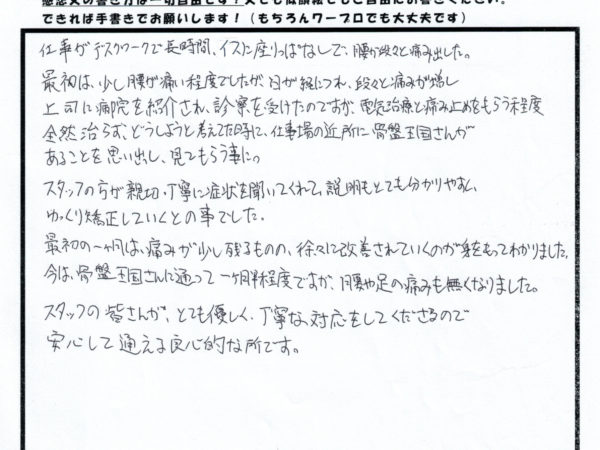 できれば手書きでお願いします！（もちろんワープロでも大丈夫です）
仕事がデスクワークで長時間、イスに座りっぱなしで、腰が段々と痛み出した。
最初は、少し腰が痛い程度でしたが、日が経につれ、段々と痛みが増し
上司に病院を紹介され、診察を受けたのですが、電気治療と痛み止めをもらう程度
全然治らず、どうしようと考えてた時に、仕事場の近所に骨盤王国さんが
あることを思い出し、見てもらう事に。
スタッフの方が親切、丁寧に症状を聞いてくれて、説明もとても分かりやすく、
ゆっくり矯正していくとの事でした。
最初の一ヶ月は、痛みが少し残るものの、徐々に改善されていくのが身をもってわかりました。
今は、骨盤王国さんに通って一ヶ月半程度ですが、腰や足の痛みも無くなりました。
スタッフの皆さんが、とても優しく、丁寧な対応をしてくださるので
安心して通える良心的な所です。